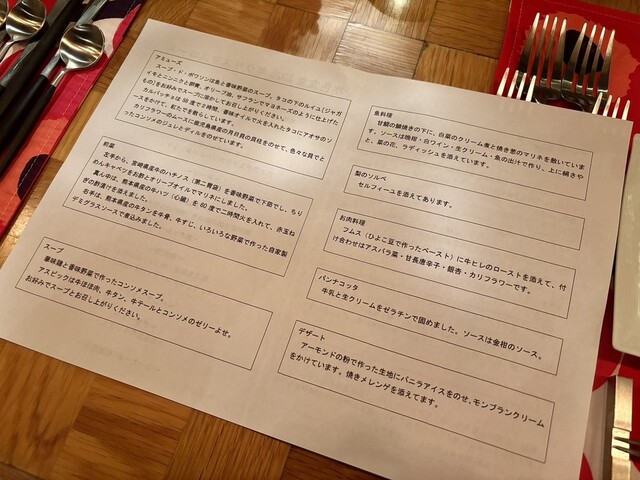 アミューズ
スープ・ド・ポワソンは魚と香味野菜のスープ。タコの下のルイユ(ジャガ
イモとニンニクと卵黄、オリーブ油、サフランでマヨネーズのように仕上げた
もの)をお好みでスープに溶かしてお召し上がりください。
カルパッチョは 59 度で 2 時間、香味オイルで火を入れたタコにアオサのソ
ースをかけて、紅たで を飾りしています。
カリフラワーのムースに鹿児島県産の月日貝の貝柱をのせて、色々な貝でと
ったコンソメのジュレとディルをのせています。
前菜
左手から、宮崎県産牛のハチノス(第二胃袋)を香味野菜で下茹でし、ちり
めんキャベツをお酢とオリーブオイルでマリネにしました。
真ん中は、熊本県産の牛ハツ(心臓)を 60 度で二時間火を入れて、赤玉ね
ぎの酢漬けを添えました。
右手は、熊本県産の牛タンを牛骨、牛すじ、いろいろな野菜で作った自家製
デミグラスソースで煮込みました。
スープ
軍鶏と香味野菜で作ったコンソメスープ。
アスピックは牛ほほ肉、牛タン、牛テールとコンソメのゼリーよせ。
お好みでスープとお召し上がりください。
魚料理
甘鯛の鱗焼きの下に、白菜のクリーム煮と焼き葱のマリネを敷いていま
す。ソースは晩柑・白ワイン・生クリーム・魚の出汁で作り、上に絹さや
と、菜の花、ラディッシュを添えています。
梨のソルベ
セルフィーユを添えてあります。
お肉料理
フムス(ひよこ豆で作ったペースト)に牛ヒレのローストを添えて、付
け合わせはアスパラ菜・甘長唐辛子・銀杏・カリフラワーです。
パンナコッタ
牛乳と生クリームをゼラチンで固めました。ソースは金柑のソース。
デザート
アーモンドの粉で作った生地にバニラアイスをのせ、モンブランクリーム
をかけています。焼きメレンゲを添えてます。